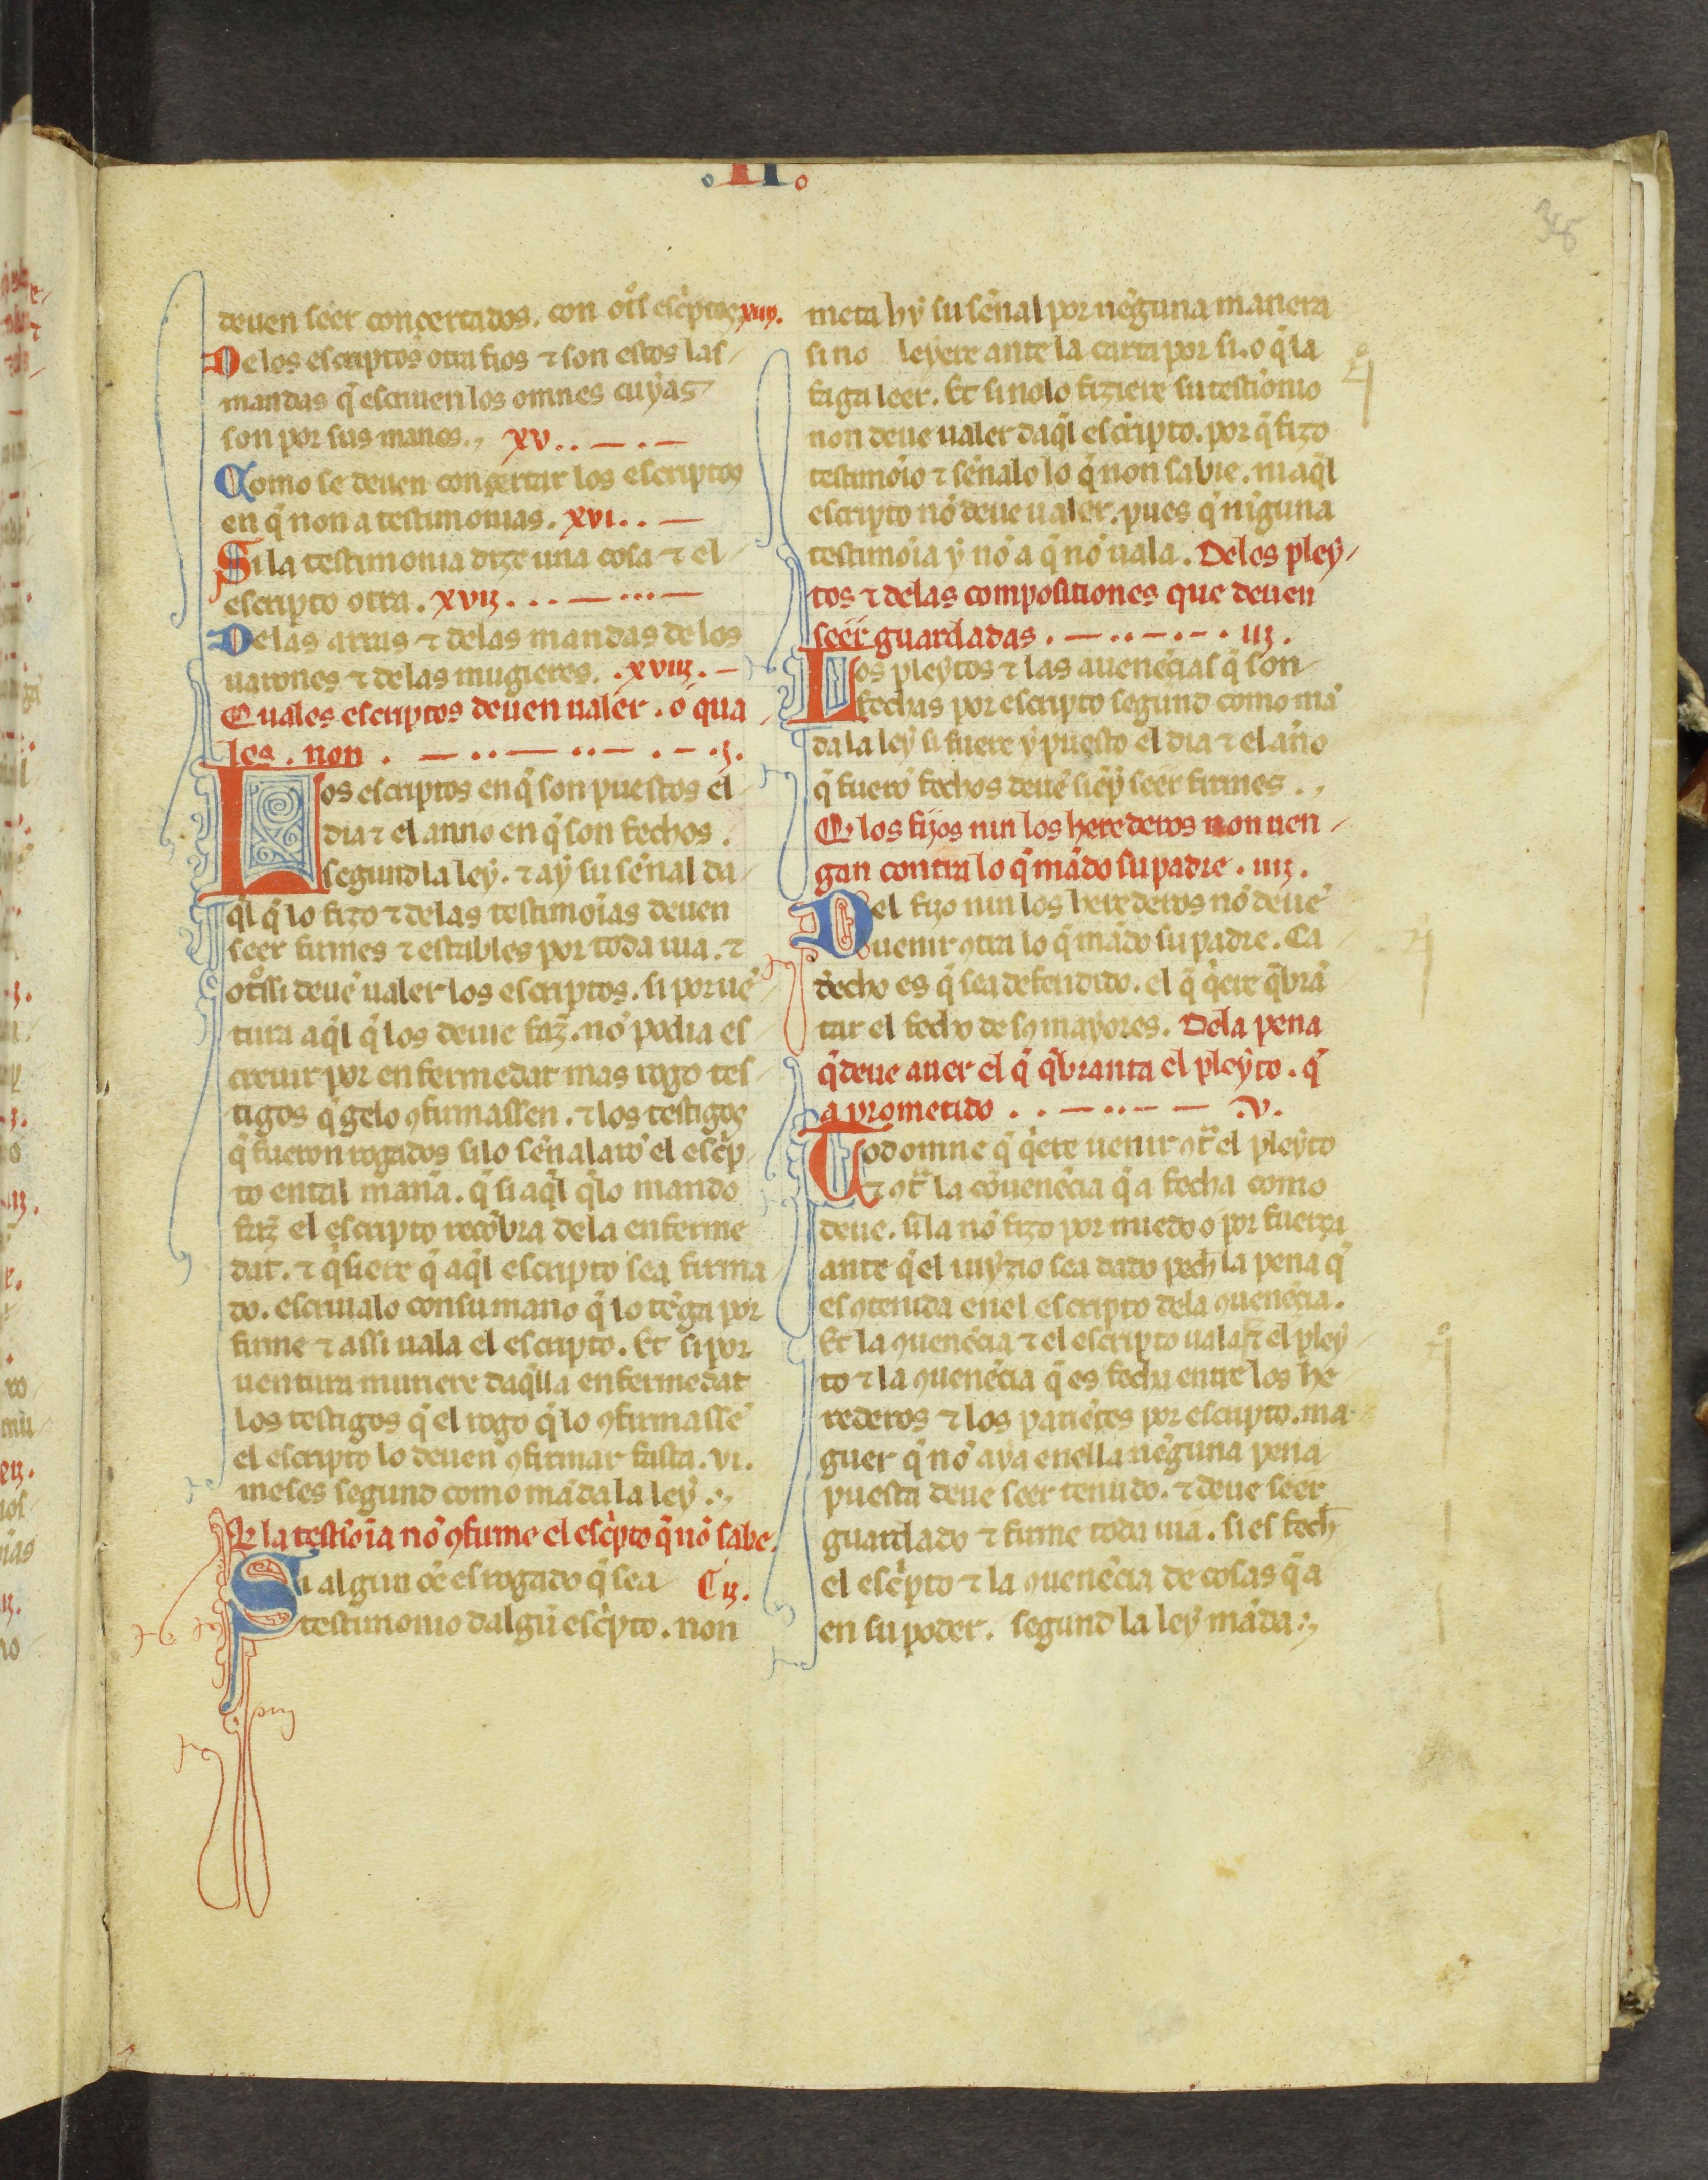 .II.
38
deuen seer conçertados. con ot̃s esc̃ptos xiiij.
De los escriptos otra fios ⁊ son estos las
mandas q̃ escriuen los omnes cuyas
son por sus manos. xv..—.—
Como se deuen conçertar los escriptos
en q̃ non a testimonias. xvi..—
Si la testimonia dize una cosa ⁊ el
escripto otra. xvij...—...—
De las arras ⁊ delas mandas de los
uarones ⁊ de las mugieres. .xviij.—
Quales escriptos deuen ualer. o qua
les. non . —..—..—.—.j.
Los escriptos en q̃ son puestos el
dia ⁊ el anno en q̃ son fechos.
segund la ley. ⁊ ay su sẽnal da
q̃l q̃ lo fizo ⁊ delas testimoĩas deuen
seer firmes ⁊ estables por toda uia. ⁊
ot̃ssi deuẽ ualer los escriptos. si por uẽ
tura aq̃l q̃ los deuie faz̃. nõ podia es
creuir por enfermedat mas rogo tes
tigos q̃ gelo ꝯfirmassen. ⁊ los testigos
q̃ fueron rogados si lo sẽnalarõ el esc̃p
to en tal mañã. q̃ si aq̃l q̃ lo mando
faz̃ el escripto recobra dela enferme
dat. ⁊ q̃siere q̃ aq̃l escripto sea firma
do. escriualo con su mano q̃ lo tẽga por
firme ⁊ assi uala el escripto. Et si por
uentura muriere daq̃lla enfermedat
los testigos q̃ el rogo q̃ lo ꝯfirmassẽ
el escripto lo deuen ꝯfirmar fasta. vi.
meses segund como mãda la ley.
Q̃ la testĩoĩa nõ ꝯfirme el esc̃pto q̃ nõ sabe.
Si algun oẽ es rogado q̃ sea C ij.
testimonio dalgũ esc̃pto. non
meta hy su sẽnal por nẽguna manera
si no leyere ante la carta por si. o q̃ la
faga leer. Et si no lo fiziere su testĩonio
non deue ualer daq̃l escripto. por q̃ fizo
testimoĩo ⁊ sẽnalo lo q̃ non sabie. ni aq̃l
escripto nõ deue ualer. pues q̃ nĩguna
testimoĩa y nõ a q̃ nõ uala. Delos pley
tos ⁊ delas compositiones que deuen
seer guardadas.—..—.—.iij.
Los pleytos ⁊ las auenẽcias q̃ son
fechas por escripto segund como mã
da la ley si fuere y puesto el dia ⁊ el año
q̃ fuerõ fechos deuẽ siẽp̃ seer firmes.
Q̃ los fijos nin los herederos non uen
gan contra lo q̃ mãdo su padre. iiij.
Del fijo nin los herederos nõ deuẽ
uenir ꝯtra lo q̃ mãdo su padre. Ca
d̃echo es q̃ sea defendido. el q̃ q̃ere q̃brã
tar el fecho de sꝯ mayores. Dela pena
q̃ deue auer el q̃ q̃branta el pleyto. q̃
a prometido ..—..—— .v.
Tod omne q̃ q̃ere uenir ꝯt̃ el pleyto
⁊ ꝯt̃ la cõuenẽcia q̃ a fecha como
deue. si la nõ fizo por miedo o por fuerça
ante q̃ el iuyzio sea dado pech̃ la pena q̃
es ꝯtenida en el escripto dela ꝯuenẽcia.
Et la ꝯuenẽcia ⁊ el escripto uala ⁊ el pley
to ⁊ la ꝯuenẽcia q̃ es fecha entre los he
rederos ⁊ los pariẽtes por escripto. ma
guer q̃ nõ aya en ella nẽguna pena
puesta deue seer tenudo. ⁊ deue seer
guardado ⁊ firme toda uia. si es fech̃
el esc̃pto ⁊ la ꝯuenẽcia de cosas q̃ a
en su poder. segund la ley mãda.